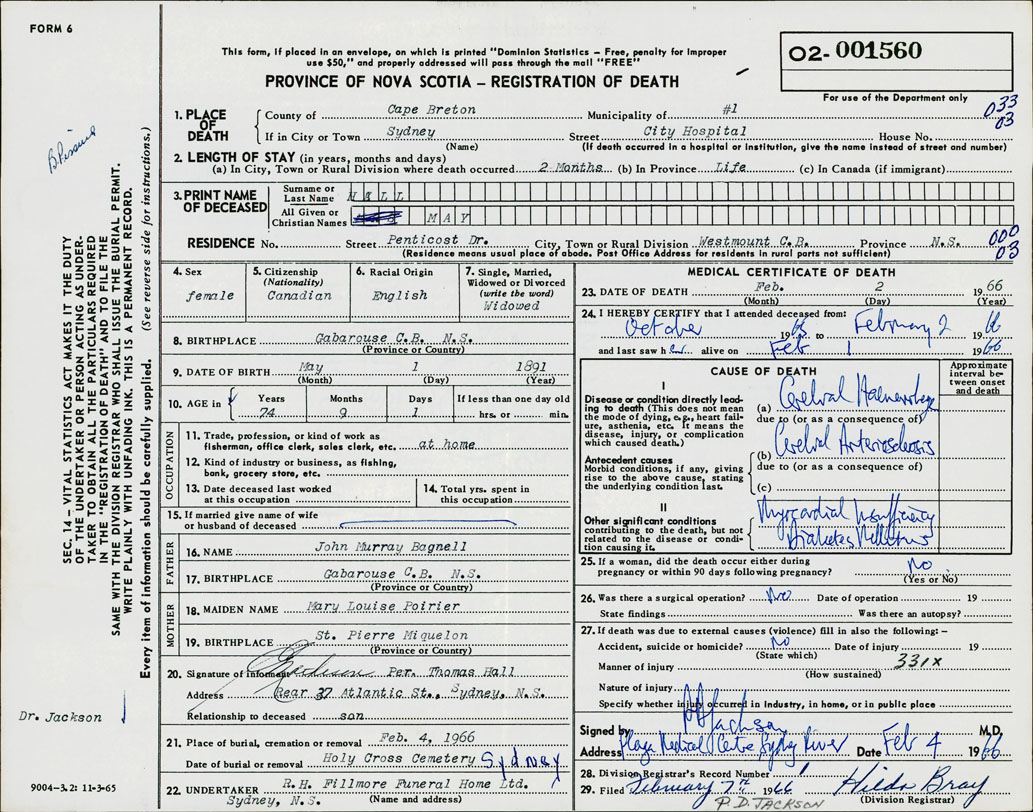 FORM 6
This form, if placed in an envelope, on which is printed "Dominion Statistics – Free, penalty for improper
use $50," and properly addressed will pass through the mail "FREE"
PROVINCE OF NOVA SCOTIA – REGISTRATION OF DEATH
O2- 001560
For use of the Department only
033
03
1. PLACE OF DEATH
County of Cape Breton Municipality of #1
If in City or Town Sydney Street City Hospital House No.
(Name) (If death occurred in a hospital or institution, give the name instead of street and number)
2. LENGTH OF STAY (in years, months and days)
(a) In City, Town or Rural Division where death occurred 2 Months (b) In Province Life (c) In Canada (if immigrant)
3. PRINT NAME OF DECEASED
Surname or Last Name HALL
All Given or Christian Names MAY
RESIDENCE No. Street Penticost Dr. City, Town or Rural Division Westmount C.B. Province N.S.
(Residence means usual place of abode. Post Office Address for residents in rural parts not sufficient)
000
03
4. Sex
female
5. Citizenship
(Nationality)
Canadian
6. Racial Origin
English
7. Single, Married,
Widowed or Divorced
(write the word)
Widowed
8. BIRTHPLACE Gabarouse C.B. N.S.
(Province or Country)
9. DATE OF BIRTH May 1 1891
(Month) (Day) (Year)
10. AGE in Years Months Days If less than one day old
74 9 1 hrs. or min.
OCCUPATION
11. Trade, profession, or kind of work as
fisherman, office clerk, sales clerk, etc. at home
12. Kind of industry or business, as fishing,
bank, grocery store, etc.
13. Date deceased last worked
at this occupation
14. Total yrs. spent in
this occupation
15. If married give name of wife
or husband of deceased
FATHER
16. NAME John Murray Bagnell
17. BIRTHPLACE Gabarouse C.B. N.S.
(Province or Country)
MOTHER
18. MAIDEN NAME Mary Louise Poirier
19. BIRTHPLACE St. Pierre Miquelon
(Province or Country)
20. Signature of informant Per. Thomas Hall
Address Rear 37 Atlantic St., Sydney, N.S.
Relationship to deceased son
21. Place of burial, cremation or removal Feb. 4, 1966
Date of burial or removal Holy Cross Cemetery Sydney
22. UNDERTAKER R.H. Fillmore Funeral Home Ltd.
Sydney, N.S. (Name and address)
MEDICAL CERTIFICATE OF DEATH
23. DATE OF DEATH Feb. 2 1966
(Month) (Day) (Year)
24. I HEREBY CERTIFY that I attended deceased from:
October 1965 to February 2 1966
and last saw her alive on Feb 1 1966
CAUSE OF DEATH
Approximate
interval be-
tween onset
and death
I
Disease or condition directly lead-
ing to death (This does not mean
the mode of dying, e.g., heart fail-
ure, asthenia, etc. It means the
disease, injury, or complication
which caused death.)
(a) Cerebral Haemorrhage
due to (or as a consequence of)
Antecedent causes
Morbid conditions, if any, giving
rise to the above cause, stating
the underlying condition last.
(b) Cerebral Arteriosclerosis
due to (or as a consequence of)
(c)
II
Other significant conditions
contributing to the death, but not
related to the disease or condi-
tion causing it.
Myocardial Insufficiency
Diabetes Mellitus
25. If a woman, did the death occur either during
pregnancy or within 90 days following pregnancy? No
(Yes or No)
26. Was there a surgical operation? No Date of operation 19
State findings Was there an autopsy?
27. If death was due to external causes (violence) fill in also the following:–
Accident, suicide or homicide? No Date of injury 19
(State which)
Manner of injury 331X
(How sustained)
Nature of injury
Specify whether injury occurred in industry, in home, or in public place
Signed by P D Jackson M.D.
Address Plaza Medical Centre Sydney River Date Feb 4 1966
28. Division Registrar's Record Number
29. Filed February 7th 1966 Hilda Bray
P.D. JACKSON (Division Registrar)
SEC. 14 – VITAL STATISTICS ACT MAKES IT THE DUTY
OF THE UNDERTAKER OR PERSON ACTING AS UNDER-
TAKER TO OBTAIN ALL THE PARTICULARS REQUIRED
IN THE "REGISTRATION OF DEATH" AND TO FILE THE
SAME WITH THE DIVISION REGISTRAR WHO SHALL ISSUE THE BURIAL PERMIT.
WRITE PLAINLY WITH UNFADING INK. THIS IS A PERMANENT RECORD.
Every item of information should be carefully supplied. (See reverse side for instructions.)
Dr. Jackson
9004–3.2: 11-3-65